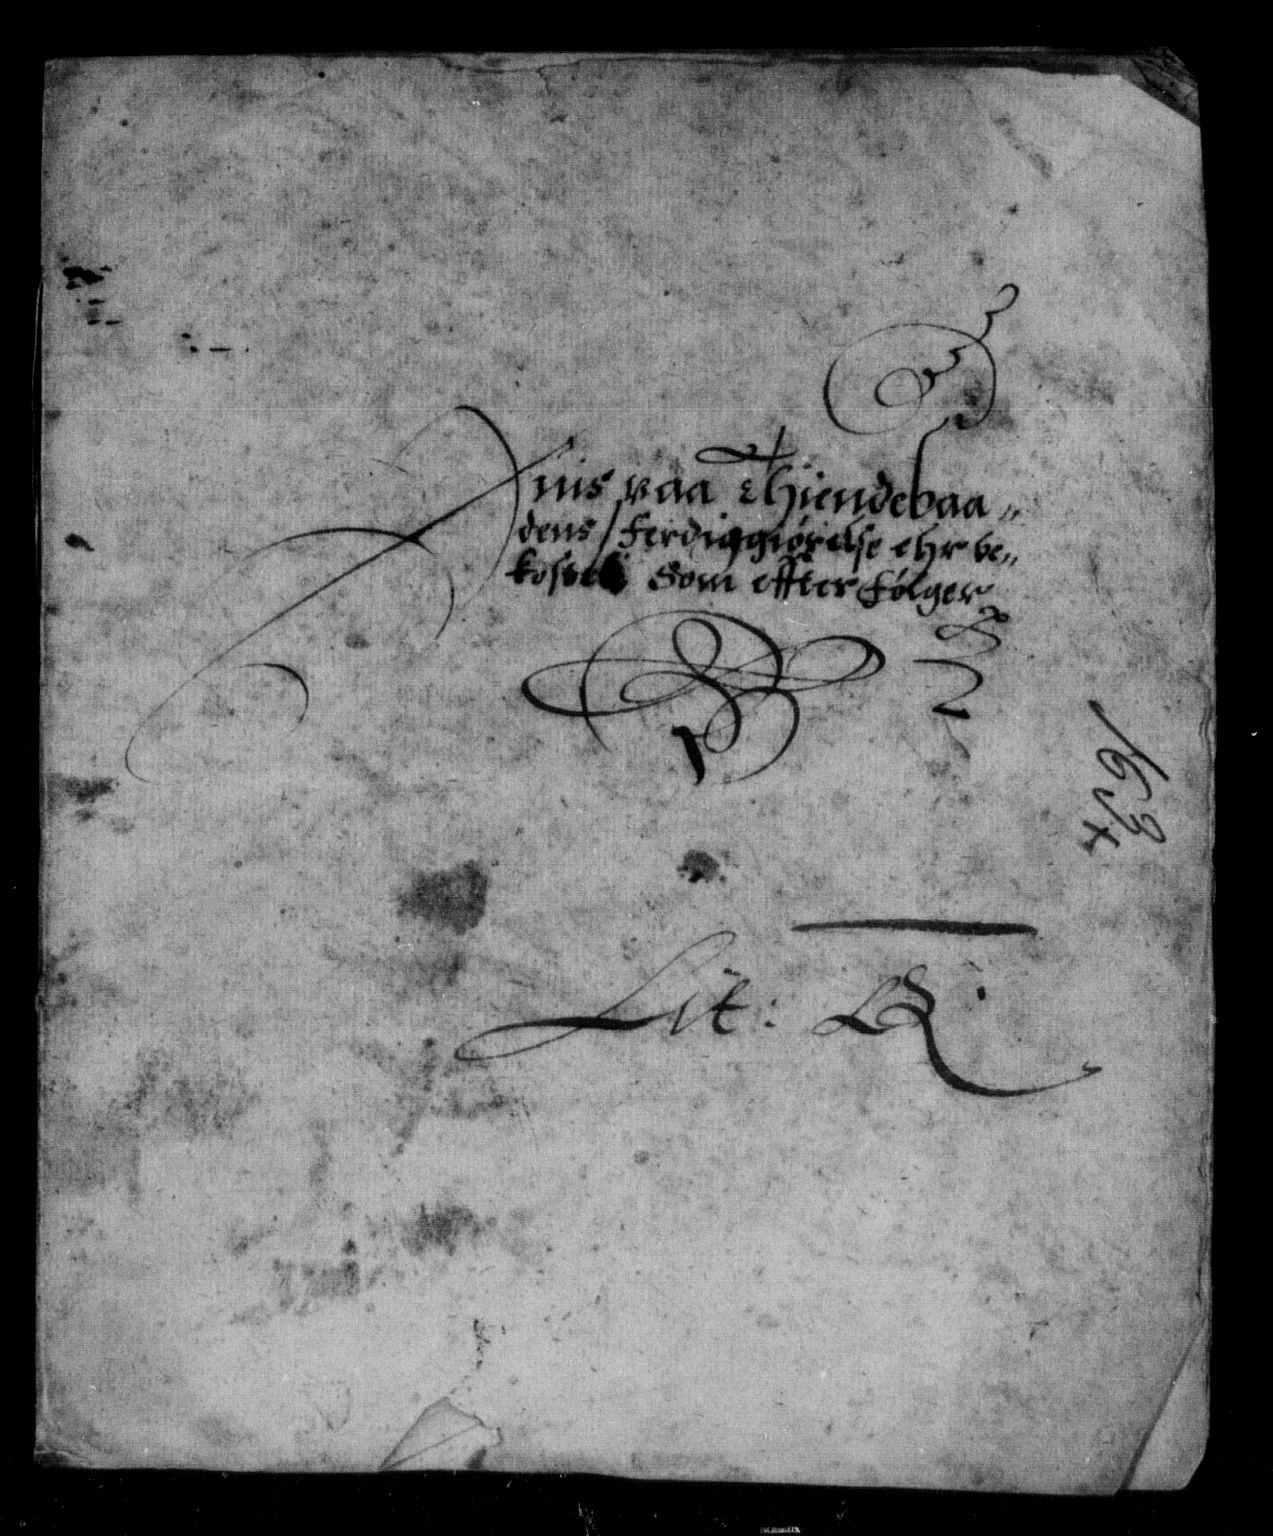 Huis paa Thiendebaa„
dens / Ferdiggiørelse ehr be„
kostet Som effter følger
163
Lit: R.